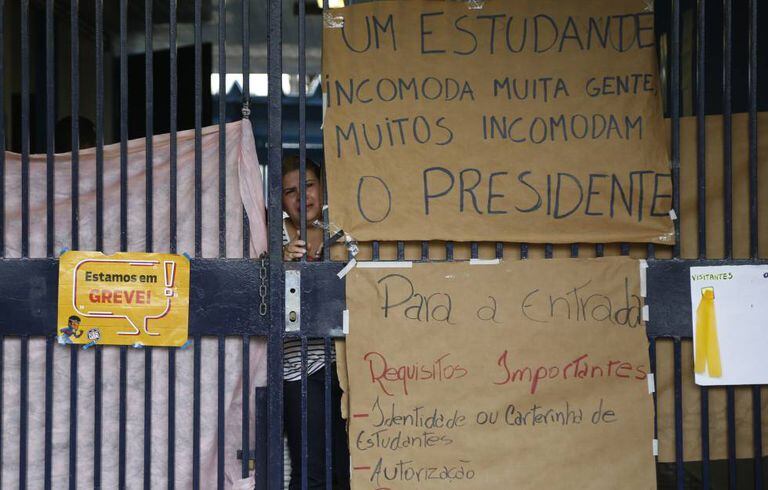 UM ESTUDANTE
INCOMODA MUITA GENTE,
MUITOS INCOMODAM
O PRESIDENTE
Estamos em
GREVE!
VISITANTES
Para a Entrada
Requisitos Importantes
- Identidade ou Carteirinha de
Estudantes
- Autorização